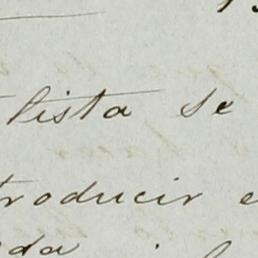 lista se
troducir
da